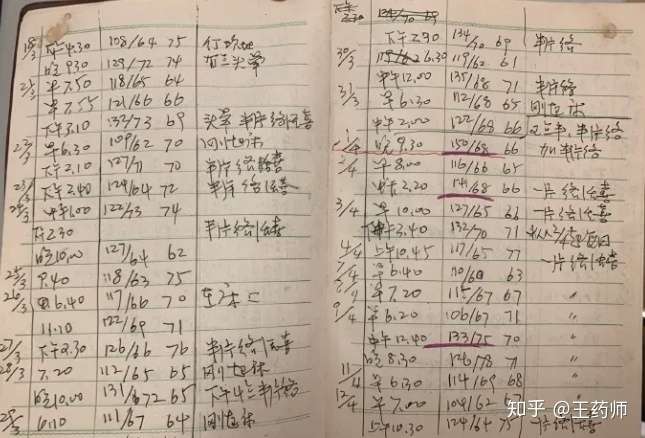 18/3 下午4.30 108/64 75
晚9.30 129/72 74
21/3 早7.50 118/65 64
早7.55 121/66 66
下午3.10 132/73 69 头晕 半片络活喜
23/3 早6.30 109/62 70 刚起床
下午2.10 127/71 70 半片络活喜
下午2.40 124/64 72 半片络活喜
中午1.00 122/73 74
下午2.30 半片络活喜
晚10.00 127/64 62
25/3 9.40 118/63 75
26/3 早6.40 117/66 70
11.10 122/69 71
27/3 下午2.30 126/66 76 半片络活喜
28/3 7.20 112/65 65 刚起床
晚10.00 131/72 65 下午 半片络
6.10 111/67 64 刚起床
下午2.30 134/70 69
下午2.90 134/70 69 半片络
30/3 6.30 119/62 61
中午12.00 135/68 71 半片络
31/3 早6.30 112/68 65 刚起床
中午2.00 122/68 66 半片络
1/4 晚9.30 150/68 66 加半片络
2/4 早8.00 116/66 65
2.20 141/68 66 一片络活喜
3/4 早10.00 127/65 66 一片络活喜
3.40 132/70 71
4/4 上午10.45 117/65 71 一片络活喜
早6.40 110/60 63
早7.20 115/67 67 〃
9/4 早6.20 106/67 71 〃
中午12.40 133/75 70 〃
晚8.30 126/78 71 〃
11/4 早6.30 114/69 68 〃
12/4 早7.00 104/62 67 〃
上午10.30 124/64 75 一片络活喜
知乎 @王药师